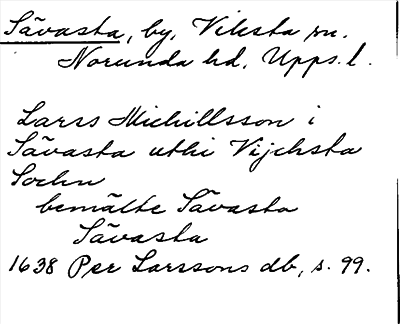 Sävasta, by, Viksta sn.
Norunda hd, Upps. l.
Larss Michillsson i
Sävasta uthi Vijchsta
Sochn
bemälte Sävasta
Sävasta
1638 Per Larssons db, s. 99.